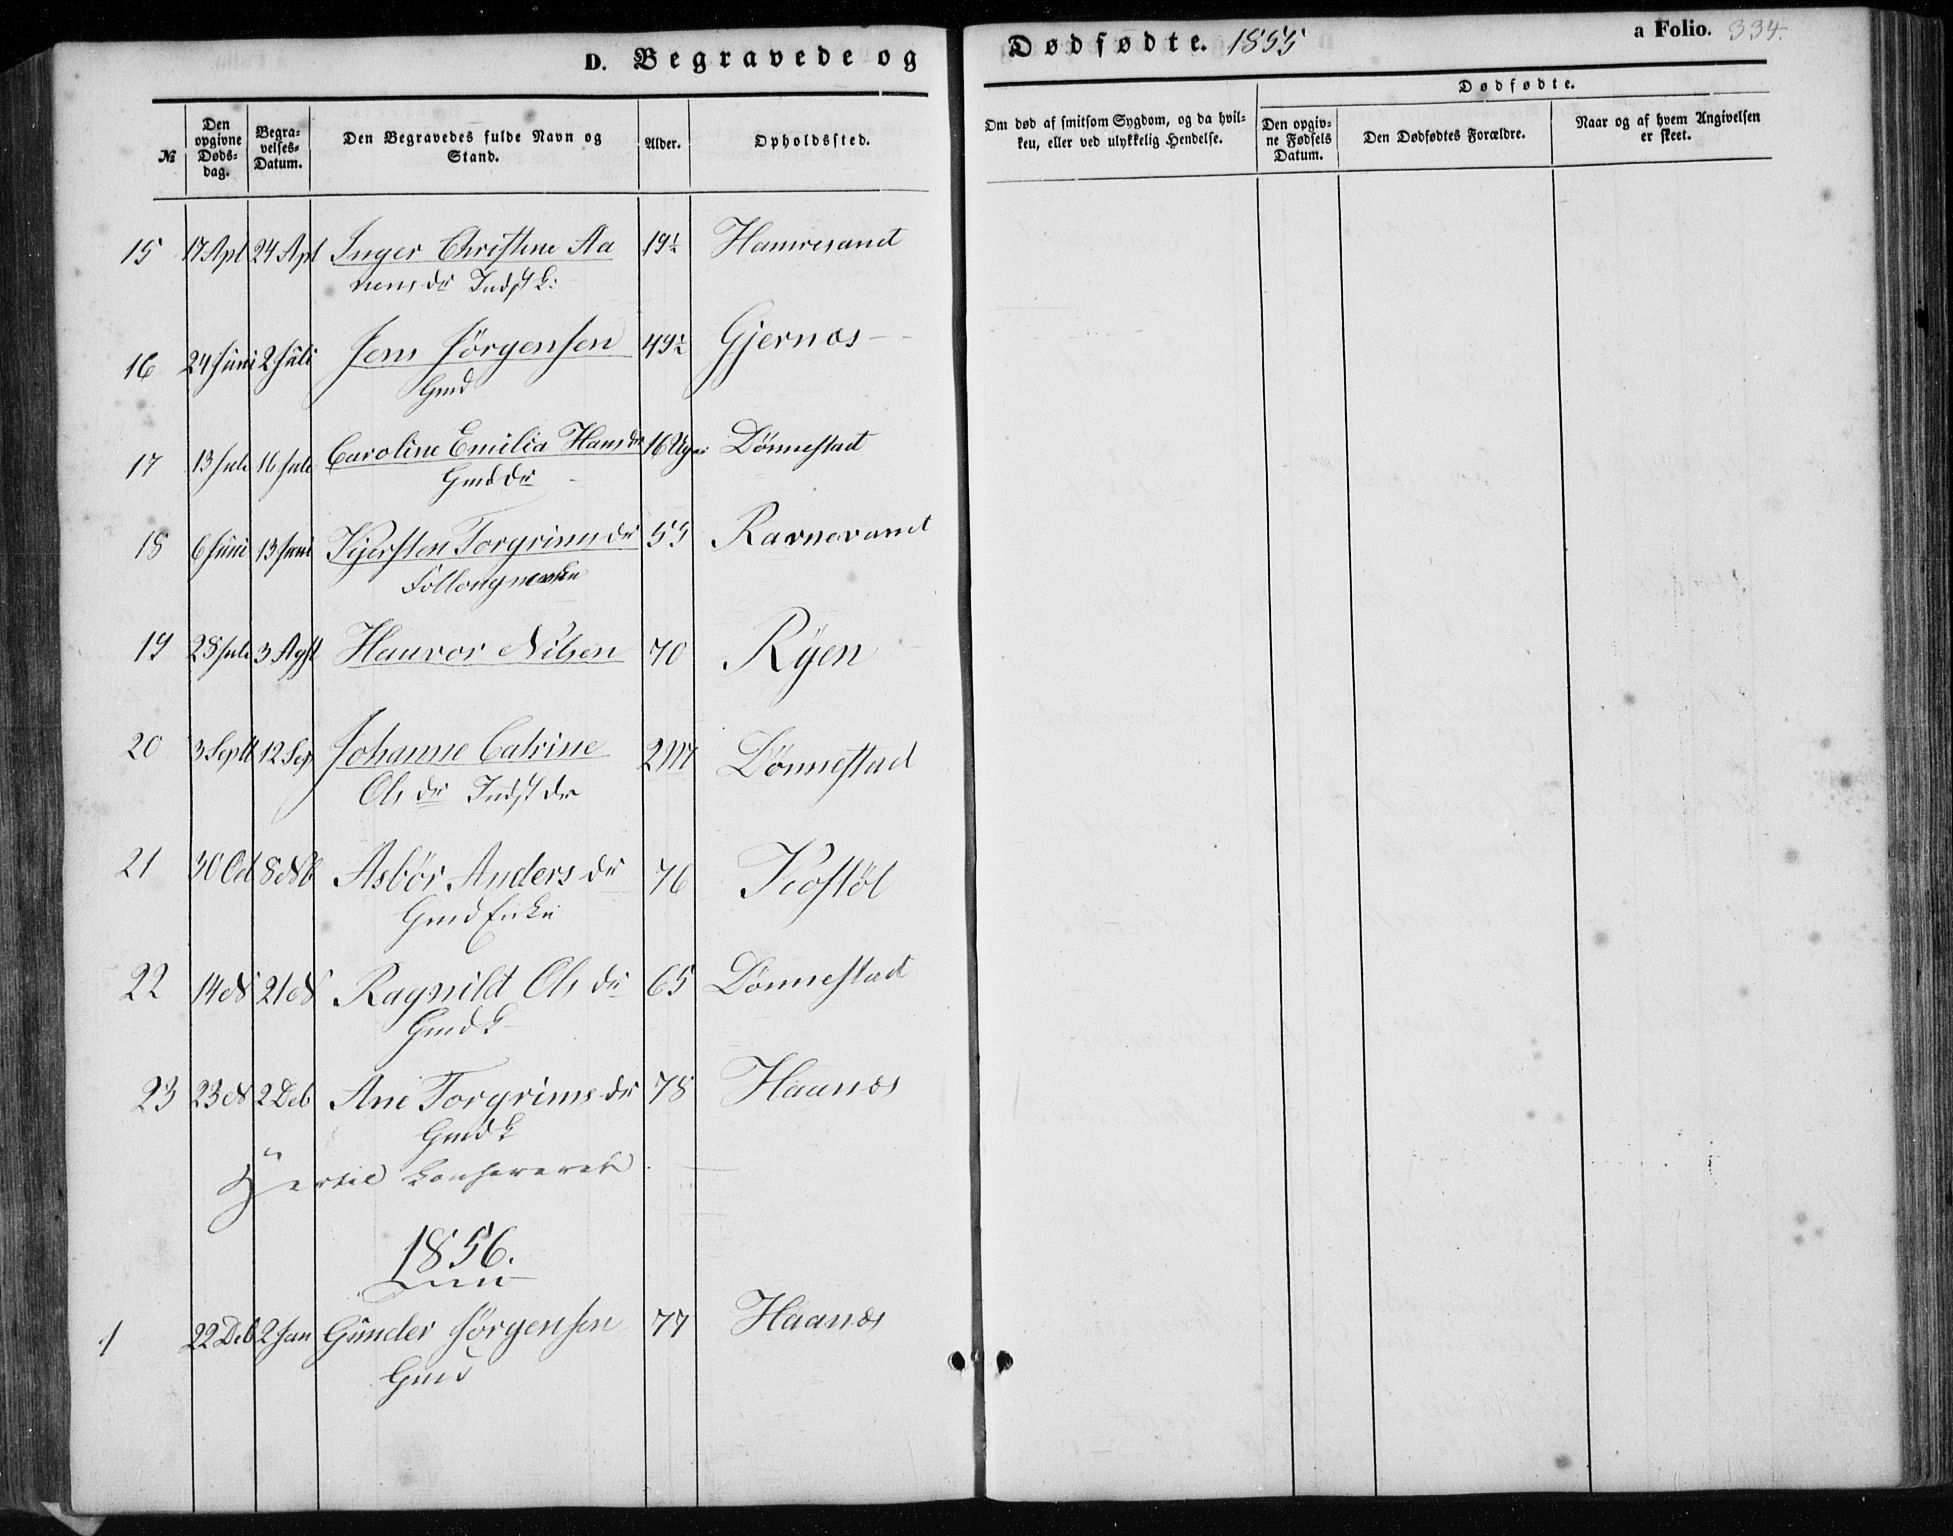 D. Begravede og Dødfødte. 1855
a Folio. 334.
№
Den opgivne Døds-dag.
Begra-velses-Datum.
Den Begravedes fulde Navn og Stand.
Alder.
Opholdssted.
Om død af smitsom Sygdom, og da hvil-ken, eller ved ulykkelig Hendelse.
Dødfødte.
Den opgiv-ne Fødsels Datum.
Den Dødfødtes Forældre.
Naar og af hvem Angivelsen er skeet.
15 17 Apl 24 Apl Inger Christine Aa 19½ Hamresand
nens dr Indst k:
16 24 Juni 2 Juli Jens Jørgensen 49½ Gjernes
Gmd
17 13 Juli 16 Juli Caroline Emilia Hans dr 16 Uger Dønnestad
Gmd dr
18 6 Juni 13 Juni Kjersten Torgrims dr 55 Ravnevand
19 28 Juli 3 Agst Hauvor Nilsen 70 Ryen
20 3 Sept 12 Sep Johanne Catrine 2 M Dønnestad
Ols dr Indst dr
21 30 Oct 8 Nb Asbør Anders dr 76 Kostøl
Gmd Enke
22 14 N 21 N Ragnild Ols dr 65 Dønnestad
Gmd k
23 23 N 2 Deb Ane Torgrims dr 78 Haanes
Gmd k
Hertil
1856.
1 22 Deb 2 Jan Gunder Jørgensen 77 Haanes
Gmd